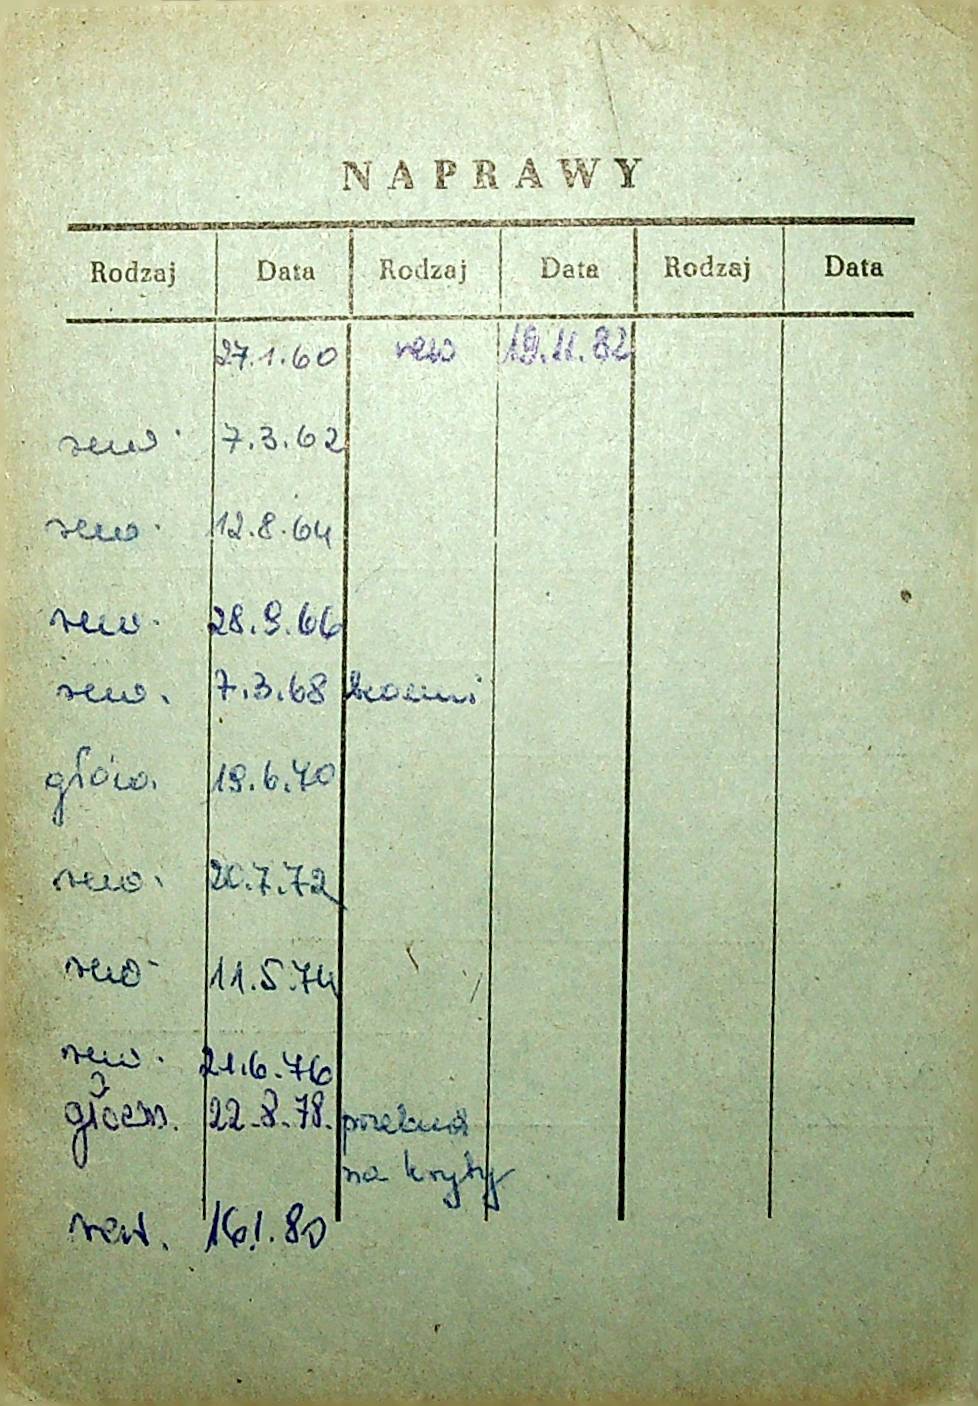 NAPRAWY
Rodzaj Data Rodzaj Data Rodzaj Data
27.1.60 rew 19.11.82
rew. 7.3.62
rew. 12.8.64
rew. 28.9.66
rew. 7.3.68
głów. 19.6.70
rew. 20.7.72
rew. 11.5.74
rew. 21.6.76
główn. 22.8.78.
na kryty
rew. 16.1.80